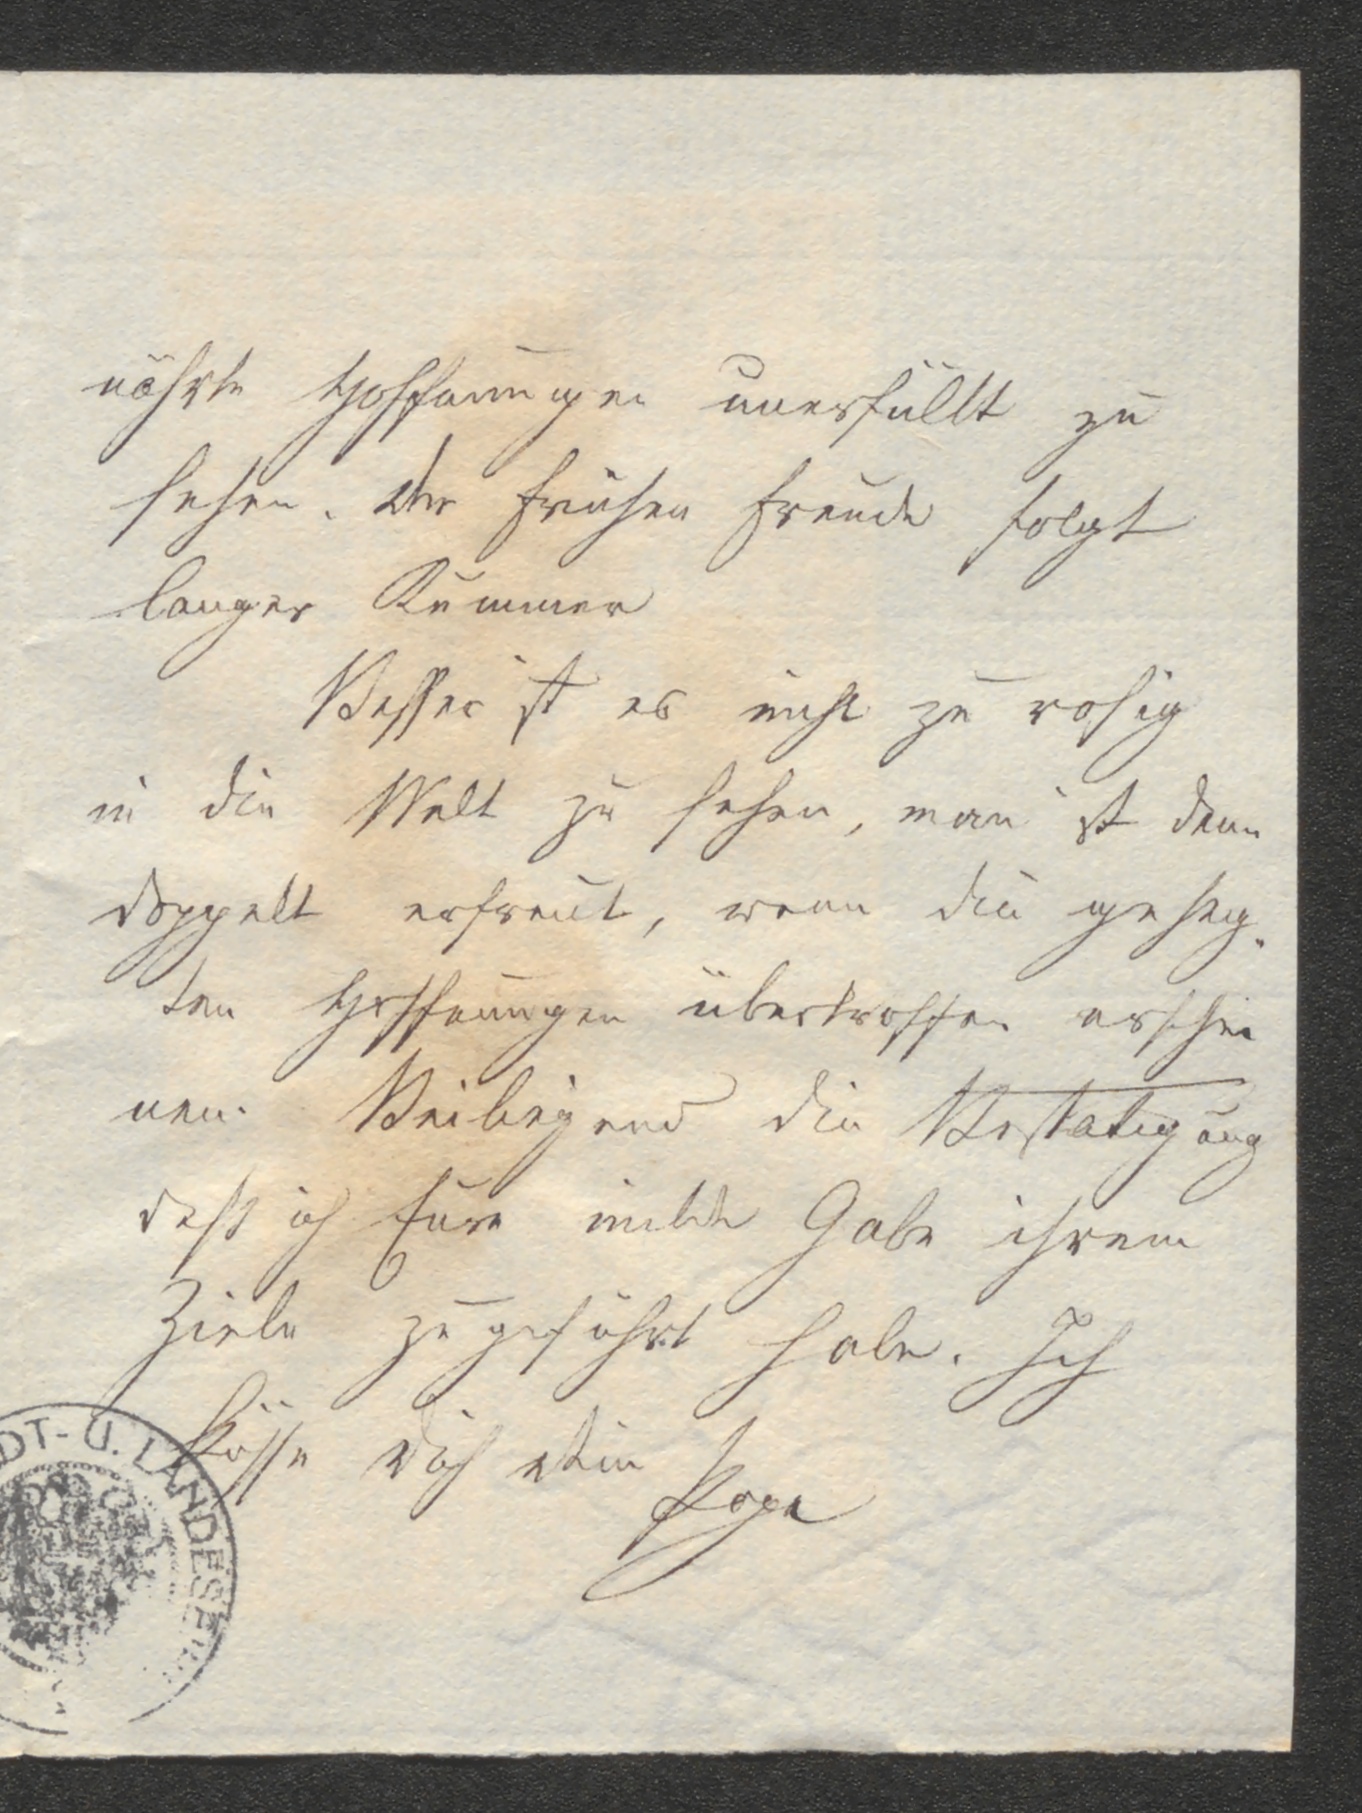 nährte Hoffnungen unerfüllt zu
sehen. Der frühen Freude folgt
langer Kummer
Besser ist es nicht zu rosig
in die Welt zu sehen, man ist dann
doppelt erfreut, wenn die geheg-
ten Hoffnungen übertroffen erschei
nen. Beiliegend die Bestätigung
daß ich Eure milde Gabe ihrem
Ziele zugeführt habe. Ich
küsse dich Dein
DT- U. LANDES